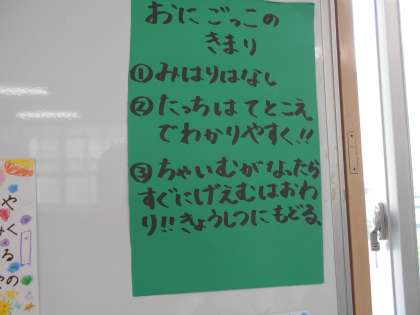 おにごっこの
きまり
①みはりはなし
②たっちはてとこえ
でわかりやすく!!
③ちゃいむがなったら
すぐにげえむはおわ
り!!きょうしつにもどる、
や
みく
る
やの